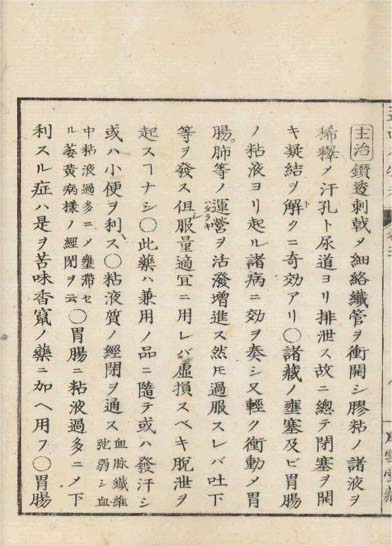 主治 鑽透刺戟〆細絡纎管ヲ衝開シ膠粘ノ諸液ヲ
稀釋〆汗孔ト尿道ヨリ排泄ス故ニ總テ閉塞ヲ開
キ凝結ヲ解クニ奇効アリ〇諸藏ノ壅塞及ビ胃腸
ノ粘液ヨリ起ル諸病ニ効ヲ奏シ又輕ク衝動〆胃
腸。肺等ノ運營ヲ活潑增進ス然𪜈過服スレバ吐下
ハタラキ
等ヲ發ス但服量適宜ニ用レバ虛損スベキ脫泄ヲ
起スヿナシ〇此藥ハ兼用ノ品ニ隨テ或ハ發汗シ
或ハ小便ヲ利ス〇粘液質ノ經閉ヲ通ス
血脉纎維
弛弱シ血
中粘液過多ニ〆壅滯セ
ル萎黃病樣ノ經閉ヲ云〇胃腸ニ粘液過多ニ〆下
利スル症ハ是ヲ苦味香竄ノ藥ニ加ヘ用フ〇胃腸